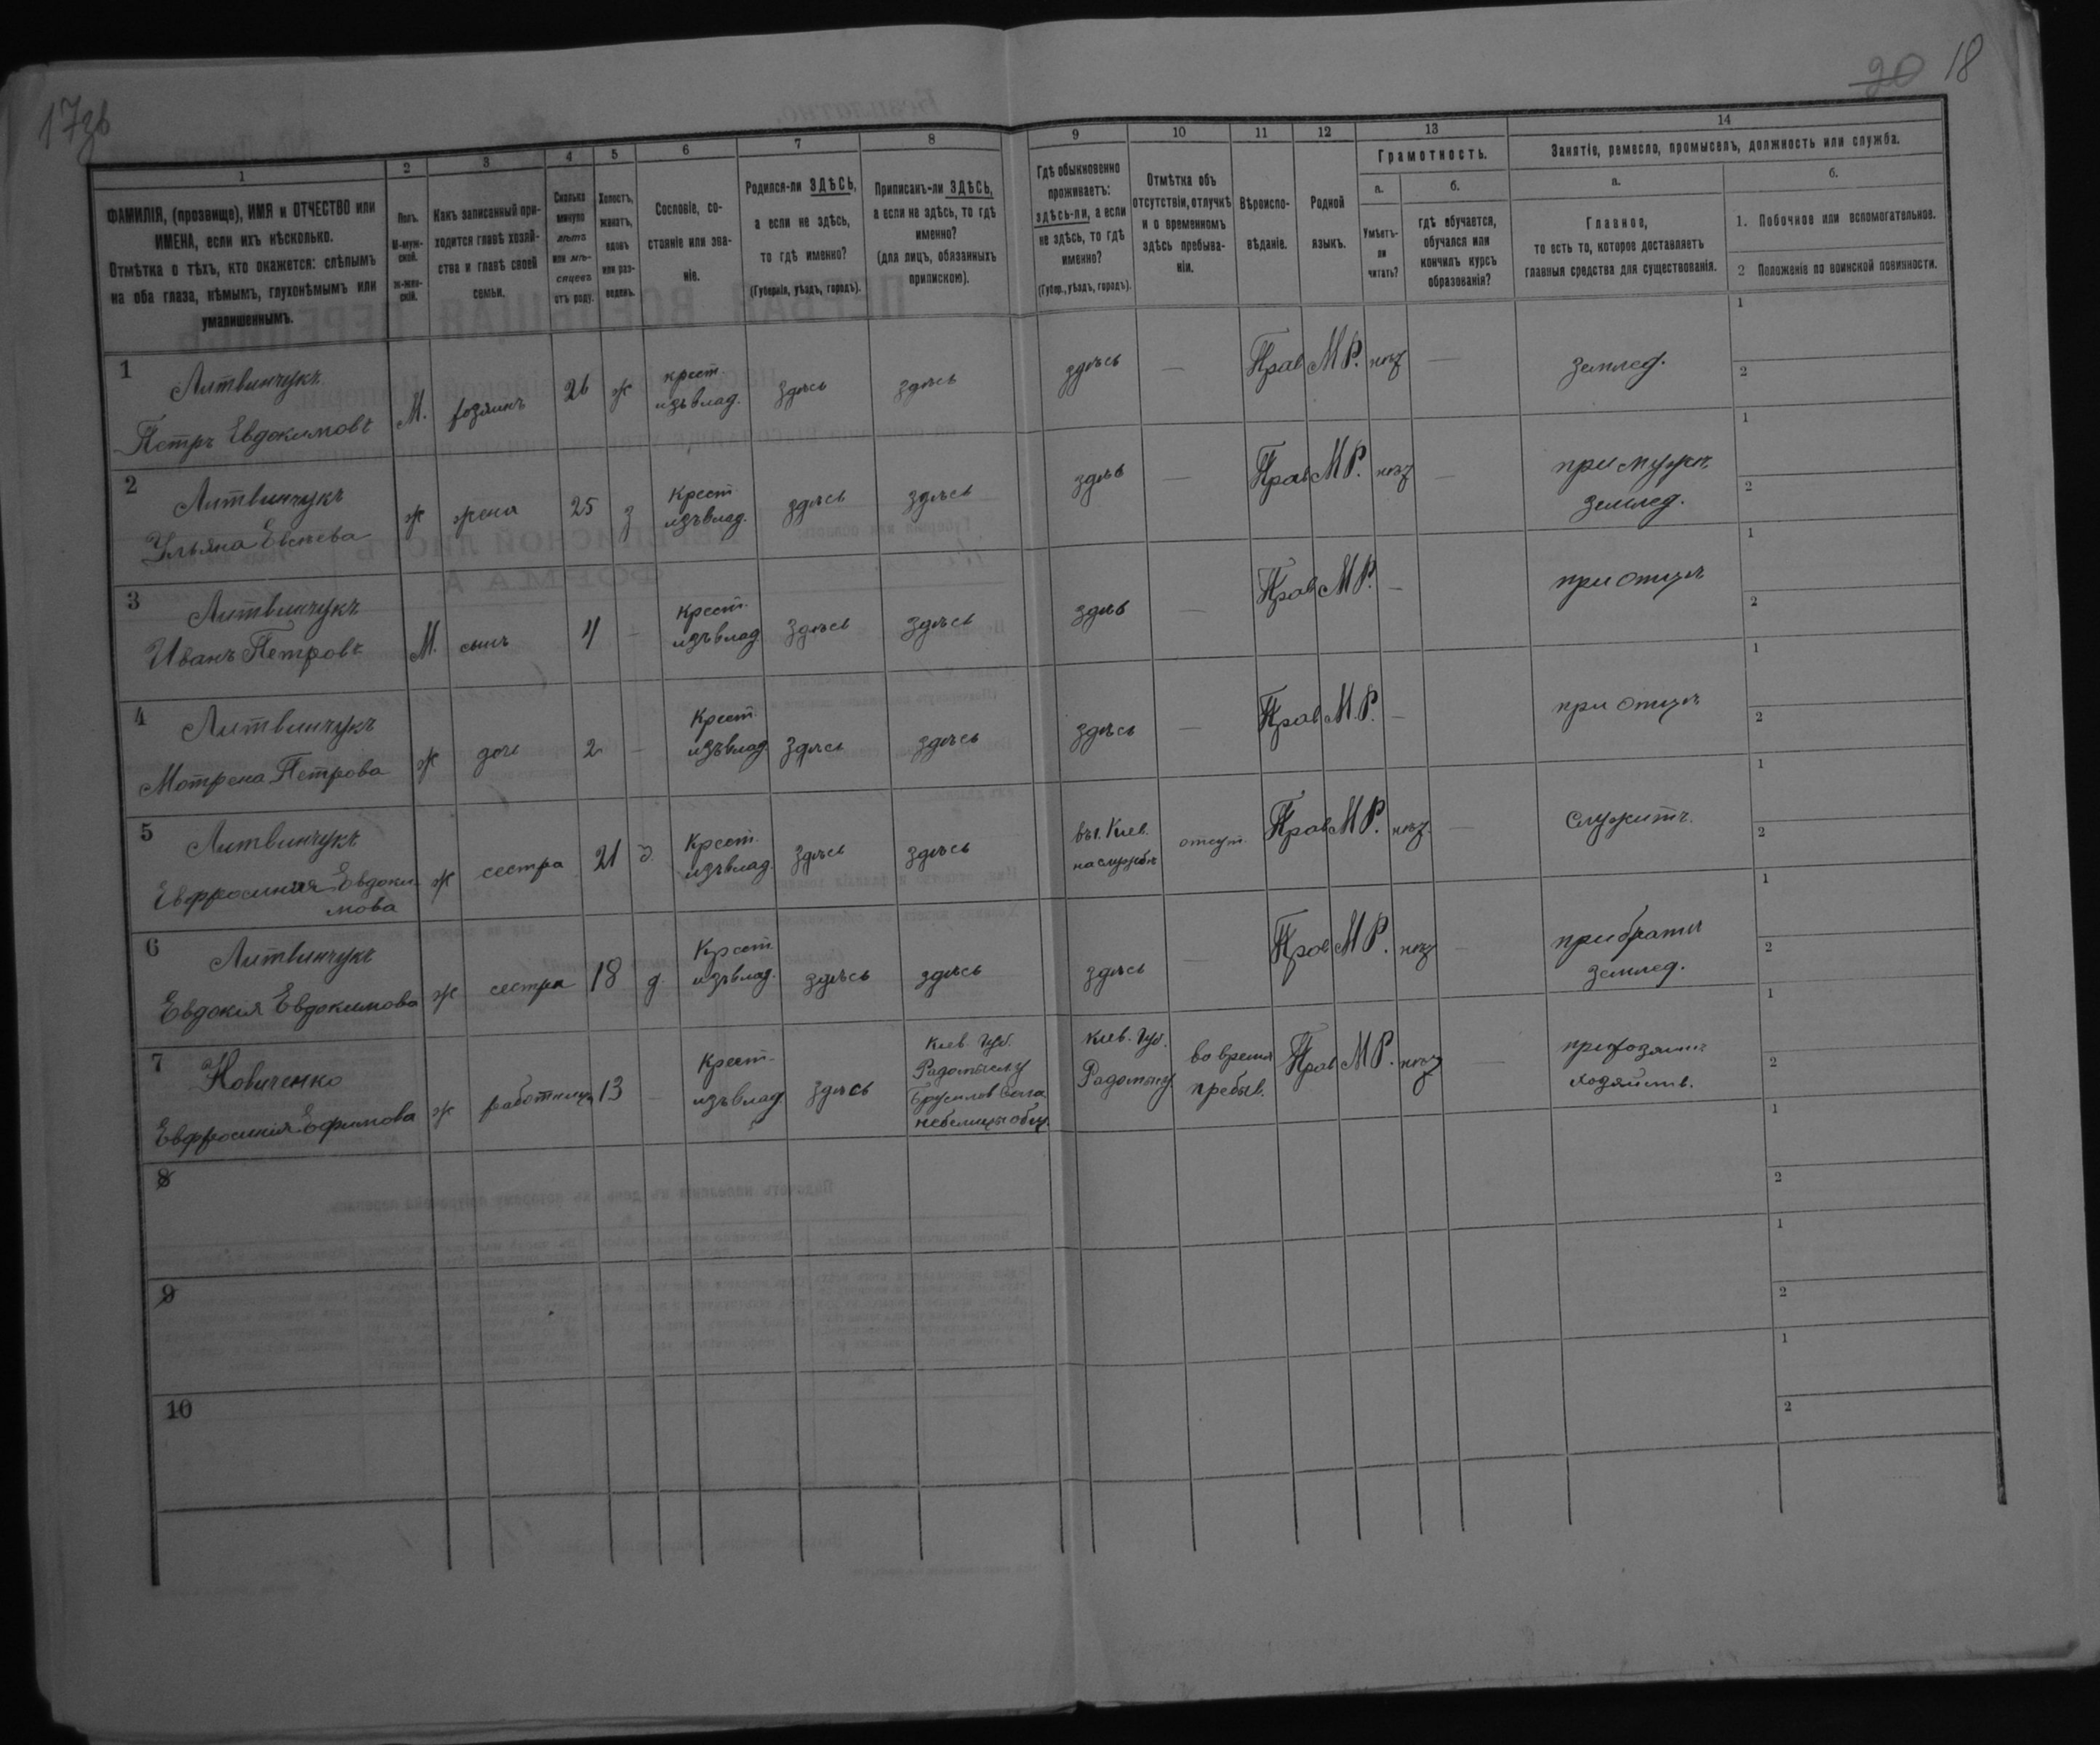 17зв
20 18
1
2
3
4
5
6
7
8
9
10
11
12
13
14
ФАМИЛІЯ, (прозвище), ИМЯ и ОТЧЕСТВО или
ИМЕНА, если ихъ нѣсколько.
Отмѣтка о тѣхъ, кто окажется: слѣпымъ
на оба глаза, нѣмымъ, глухонѣмымъ или
умалишеннымъ.
Полъ.
М-муж-
ской.
Ж-жен-
скій.
Какъ записанный при-
ходится главѣ хозяй-
ства и главѣ своей
семьи.
Сколько
минуло
лѣтъ
или мѣ-
сяцевъ
отъ роду.
Холостъ,
женатъ,
вдовъ
или раз-
веденъ.
Сословіе, со-
стояніе или зва-
ніе.
Родился-ли ЗДѢСЬ,
а если не здѣсь,
то гдѣ именно?
(Губернія, уѣздъ, городъ).
Приписанъ-ли ЗДѢСЬ,
а если не здѣсь, то гдѣ
именно?
(для лицъ, обязанныхъ
припискою).
Гдѣ обыкновенно
проживаетъ:
здѣсь-ли, а если
не здѣсь, то гдѣ
именно?
(Губер., уѣздъ, городъ).
Отмѣтка объ
отсутствіи, отлучкѣ
и о временномъ
здѣсь пребыва-
ніи.
Вѣроиспо-
вѣданіе.
Родной
языкъ.
Грамотность.
а.
Умѣетъ-
ли
читать?
б.
гдѣ обучается,
обучался или
кончилъ курсъ
образованія?
Занятіе, ремесло, промыселъ, должность или служба.
а.
Главное,
то есть то, которое доставляетъ
главныя средства для существованія.
б.
1. Побочное или вспомогательное.
2 Положеніе по воинской повинности.
1
Литвинчукъ
Петръ Евдокимовъ
М.
хозяинъ
26
ж
крест.
изъ влад.
здѣсь
здѣсь
здѣсь
—
Прав
М.Р.
нѣт
—
землед.
1
2
2
Литвинчукъ
Ульяна Евсѣева
ж
жена
25
з
Крест
изъ влад.
здѣсь
здѣсь
здѣсь
—
Прав
М.Р.
нѣт
—
при мужѣ
землед.
1
2
3
Литвинчукъ
Иванъ Петровъ
М.
сынъ
4
-
Крест.
изъ влад.
здѣсь
здѣсь
здѣсь
—
Прав
М.Р.
—
при отцѣ
1
2
4
Литвинчукъ
Мотрена Петрова
ж
дочь
2
-
Крест.
изъ влад.
здѣсь
здѣсь
здѣсь
—
Прав
М.Р.
—
при отцѣ
1
2
5
Литвинчукъ
Евфросинія Евдоки-
мова
ж
сестра
21
д.
Крест.
изъ влад.
здѣсь
здѣсь
въ г. Кіев.
на службѣ
отсут.
Прав
М.Р.
нѣт.
—
Служитъ.
1
2
6
Литвинчукъ
Евдокія Евдокимова
ж
сестра
18
д.
Крест.
изъ влад.
здѣсь
здѣсь
здѣсь
—
Прав
М.Р.
нѣт
—
при братѣ
землед.
1
2
7
Новиченко
Евфросинія Ефимова
ж
работница
13
-
Крест.
изъ влад
здѣсь
Кіев. Губ.
Радомыслу
Брусилов
Кіев. Губ.
во время
пребыв.
Прав
М.Р.
нѣт
—
1
2
8
1
2
9
1
2
10
1
2